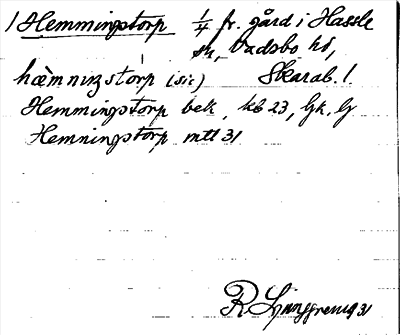 1 Hemmingstorp 1/4 fr. gård i Hassle
sn, Vadsbo hd,
hæ̀mnɩŋstɔrp (sic) Skarab. l.
Hemmingstorp bek, kb 23, Gk, G
Hemningstorp mtl 31
R. Ljunggren 1931